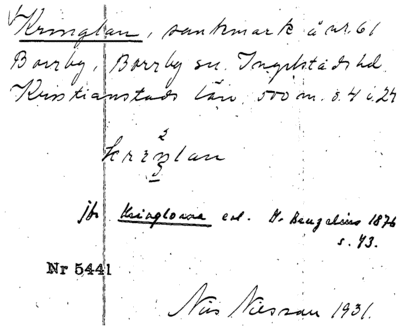 Kringlan, sankmark å nr 61
Borrby, Borrby sn. Ingelstads hd.
Kristianstads län. 500 m. s. 4 i 24
2
kreŋlan
jfr Kringlorna enl. 1876
s. 43.
Nr 5441
Nils Nilsson 1931.